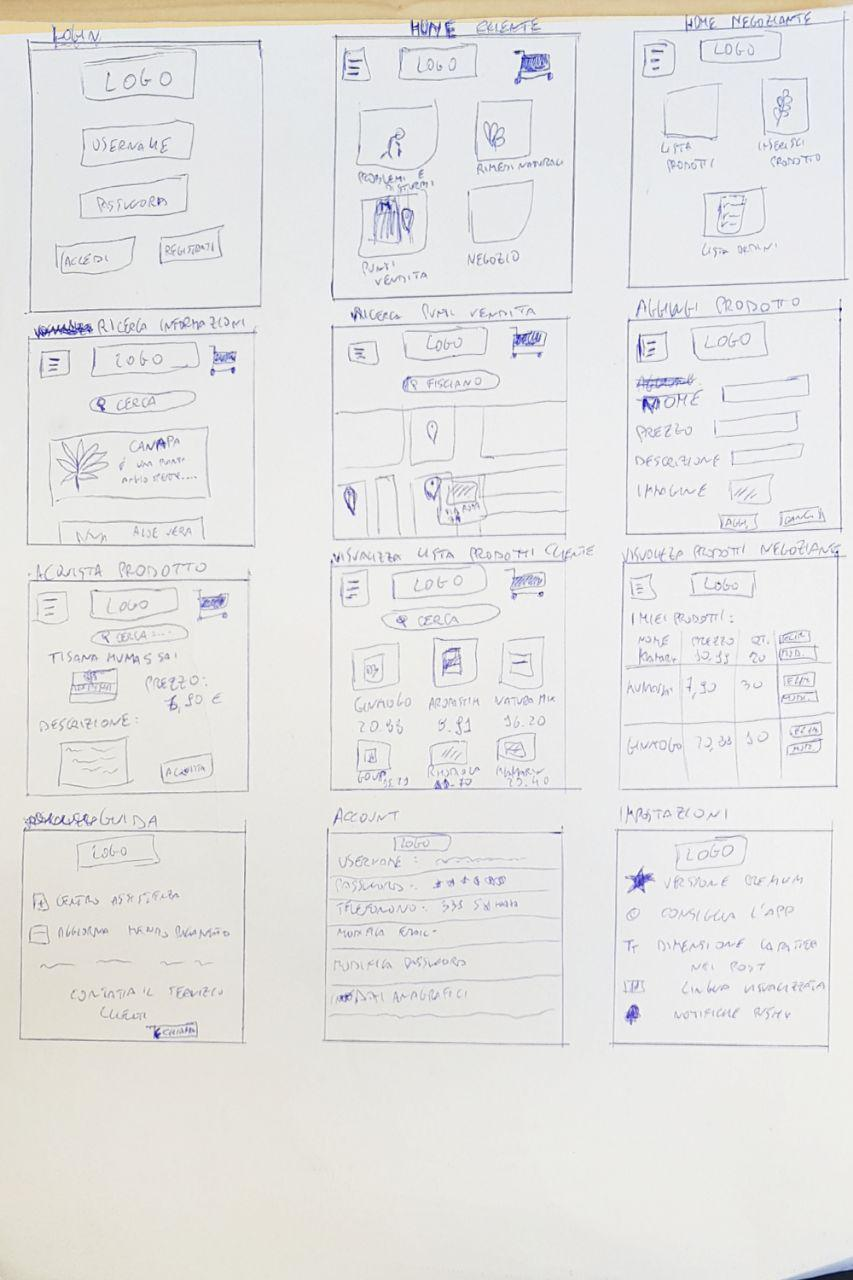 LOGIN
LOGO
USERNAME
PASSWORD
ACCEDI
REGISTRATI
HOME CLIENTE
LOGO
PROBLEMI E
DISTURBI
RIMEDI NATURALI
PUNTI
VENDITA
NEGOZIO
HOME NEGOZIANTE
LOGO
LISTA
PRODOTTI
INSERISCI
PRODOTTO
LISTA ORDINI
RICERCA INFORMAZIONI
LOGO
CERCA
CANAPA
È UNA PIANTA
ALOE VERA
RICERCA PUNTI VENDITA
LOGO
FISCIANO
VIA ROMA
AGGIUNGI PRODOTTO
LOGO
NOME
PREZZO
DESCRIZIONE
IMMAGINE
AGG.
ACQUISTA PRODOTTO
LOGO
CERCA....
TISANA
PREZZO:
,90 €
DESCRIZIONE:
ACQUISTA
VISUALIZZA LISTA PRODOTTI CLIENTE
LOGO
CERCA
NATURA MIX
16.20
VISUALIZZA PRODOTTI NEGOZIANTE
LOGO
I MIEI PRODOTTI:
NOME PREZZO QT. ELIM.
20 MOD.
7,90 30 ELIM
MOD.
ELIM
MOD.
GUIDA
LOGO
CENTRO ASSISTENZA
AGGIORNA METODO PAGAMENTO
CONTATTA IL SERVIZIO
CLIENTI
CHIAMA
ACCOUNT
LOGO
USERNAME:
PASSWORD:
TELEFONO:
MODIFICA EMAIL
MODIFICA PASSWORD
DATI ANAGRAFICI
IMPOSTAZIONI
LOGO
VERSIONE PREMIUM
CONSIGLIA L'APP
TT DIMENSIONE CARATTERI
NEI POST
LINGUA VISUALIZZATA
NOTIFICHE PUSH